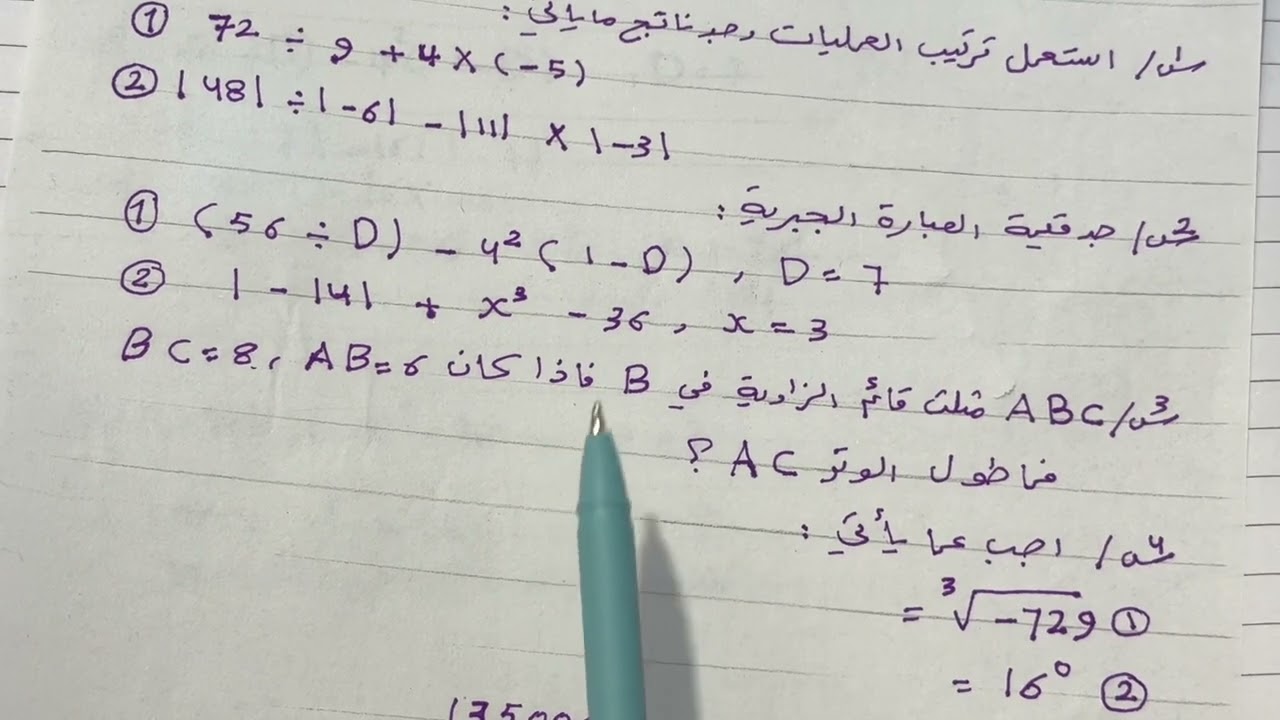 س1/ استعمل ترتيب العمليات وجد ناتج ما يأتي :
① 72 ÷ 9 + 4 × (-5)
② |48| ÷ |-6| - |11| × |-3|
س2/ جد قيمة العبارة الجبرية :
① (56 ÷ D) - 4² (1 - D) , D = 7
② 1 - |4| + x³ - 36 , x = 3
س3/ ABC مثلث قائم الزاوية في B فاذا كان AB=6 ، BC=8
فما طول الوتر AC ؟
س4/ اجب عما يأتي :
① ³√-729 =
② 16⁰ =